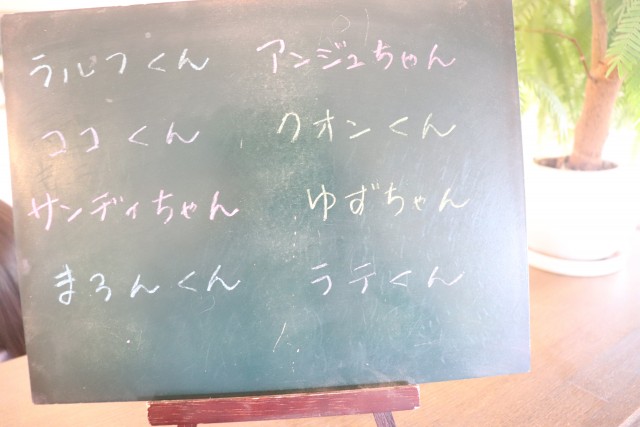 ラルフくん アンジュちゃん
ココくん クオンくん
サンディちゃん ゆずちゃん
まろんくん ラテくん